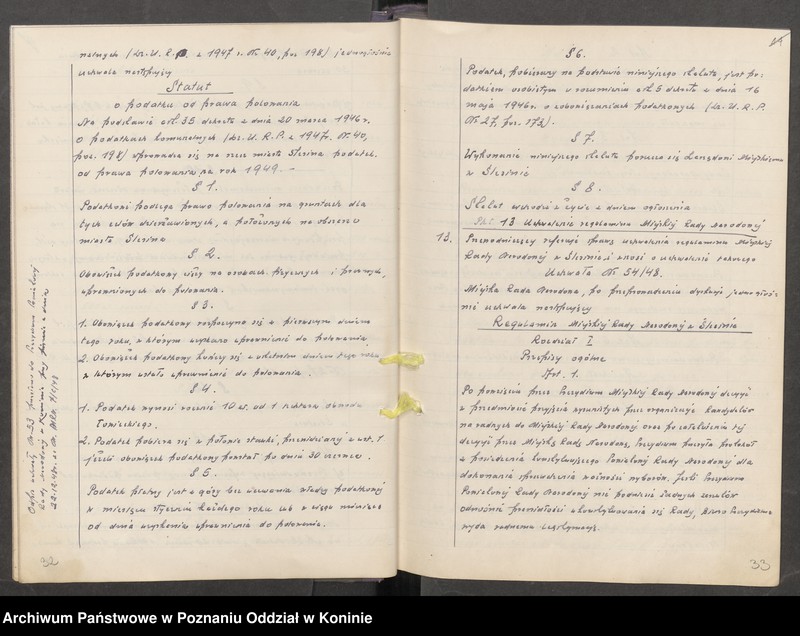 nalnych (Dz. U. R. P. z 1947 r. Nr. 40, poz. 198) jednomyślnie
uchwala następujący
Statut
o podatku od prawa polowania
Na podstawie art. 35 dekretu z dnia 20 marca 1946 r.
o podatkach komunalnych (Dz. U. R. P. z 1947 r. Nr. 40,
poz. 198) wprowadza się na rzecz miasta Ślesina podatek
od prawa polowania na rok 1949. -
§ 1.
Podatkowi podlega prawo polowania na gruntach dla
tych celów dzierżawionych, a położonych na obszarze
miasta Ślesina
§ 2.
Obowiązek podatkowy ciąży na osobach fizycznych i prawnych,
uprawnionych do polowania.
§ 3.
1. Obowiązek podatkowy rozpoczyna się z pierwszym dniem
tego roku, w którym uzyskano uprawnienie do polowania.
2. Obowiązek podatkowy kończy się z ostatnim dniem tego roku
w którym ustało uprawnienie do polowania.
§ 4.
1. Podatek wynosi rocznie 10 zł. od 1 hektara obwodu
łowieckiego.
2. Podatek pobiera się w połowie stawki, przewidzianej w ust. 1
jeżeli obowiązek podatkowy powstał po dniu 30 czerwca.
§ 5.
Podatek płatny jest z góry bez wezwania władzy podatkowej
w miesiącu styczniu każdego roku lub w ciągu miesiąca
od dnia uzyskania uprawnienia do polowania.
32
22.12.48r.
§ 6.
Podatek, pobierany na podstawie niniejszego statutu, jest po-
datkiem osobistym w rozumieniu art. 5 dekretu z dnia 16
maja 1946 r. o zobowiązaniach podatkowych (Dz. U. R. P.
Nr. 27, poz. 173).
§ 7.
Wykonanie niniejszego statutu porucza się Zarządowi Miejskiemu
w Ślesinie
§ 8.
Statut wchodzi w życie z dniem ogłoszenia
Pkt. 13 Uchwalenie regulaminu Miejskiej Rady Narodowej
13. Przewodniczący referuje sprawę uchwalenia regulaminu Miejskiej
Rady Narodowej w Ślesinie i wnosi o uchwalenie takowego
Uchwała Nr. 54/48.
Miejska Rada Narodowa, po przeprowadzeniu dyskusji jednogłoś-
nie uchwala następujący
Regulamin Miejskiej Rady Narodowej w Ślesinie
Rozdział I
Przepisy ogólne
Art. 1.
Po powzięciu przez Prezydium Miejskiej Rady Narodowej decyzji
w przedmiocie przyjęcia wysuniętych przez organizacje kandydatów
na radnych do Miejskiej Rady Narodowej oraz po zatwierdzeniu tej
decyzji przez Miejską Radę Narodową, Prezydium przesyła protokół
z posiedzenia konstytuującego Powiatowej Rady Narodowej dla
dokonania sprawdzenia ważności wyborów. Jeśli Prezydium
Powiatowej Rady Narodowej nie podniesie żadnych zarzutów
odnośnie prawidłowości ukonstytuowania się Rady, Biuro Prezydialne
wyda radnemu legitymację.
33
Archiwum Państwowe w Poznaniu Oddział w Koninie